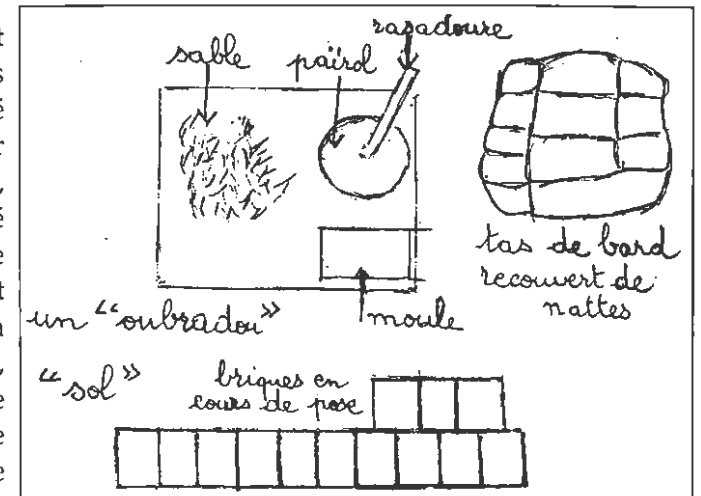 rasadouire
sable
païrol
tas de bard
recouvert de
nattes
un "oubradou"
moule
"sol"
briques en
cours de pose